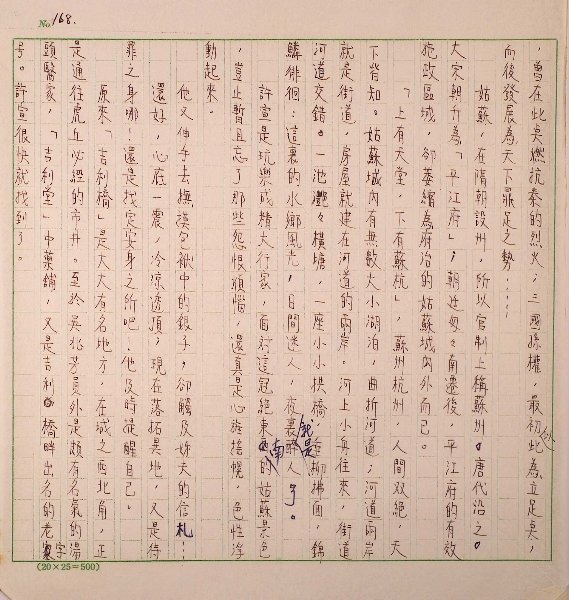 No. 168.
，曾在此吳燃抗秦的烈火；三國孫權，最初以此為立足吳，
而後發展為天下鼎足之勢……
姑蘇，在隋朝設州，所以官制上稱蘇州。唐代沿之。
大宋朝升為「平江府」；朝廷匆匆南遷後，平江府的有效
施政區域，卻萎縮為府治的姑蘇城內外而已。
「上有天堂，下有蘇杭」，蘇州杭州，人間双絕，天
下皆知。姑蘇城內有無數大小湖泊，曲折河道；河道兩岸
就是街道，房屋就建在河道的兩岸。河上小舟往來，街道
河道交錯。一池灔々橫塘，一座小小拱橋；岳柳拂面，錦
鱗徘徊；這裏的水鄉風光，日間迷人，夜裏就是醉人了。
許宣是玩樂成精大行家，面對這冠絕東南的姑蘇景色
，豈止暫且忘了那些怨恨煩惱，還真是心旌搖幌，色性浮
動起來。
他又伸手去摸摸包袱中的銀子，卻觸及姊夫的信札…
還好，心在一震，冷涼透頂；現在落拓異地，又是待
罪之身哪！還是找定安身之所吧！他及時提醒自己。
原來「吉利橋」是大大有名地方，在城之西北角，正
是通往虎丘必經的市井。至於吳兆芳員外是頗有名氣的湯
頭醫家，「吉利堂」中藥舖，又是吉利橋畔出名的老字
号。許宣很快就找到了。
(20×25=500)